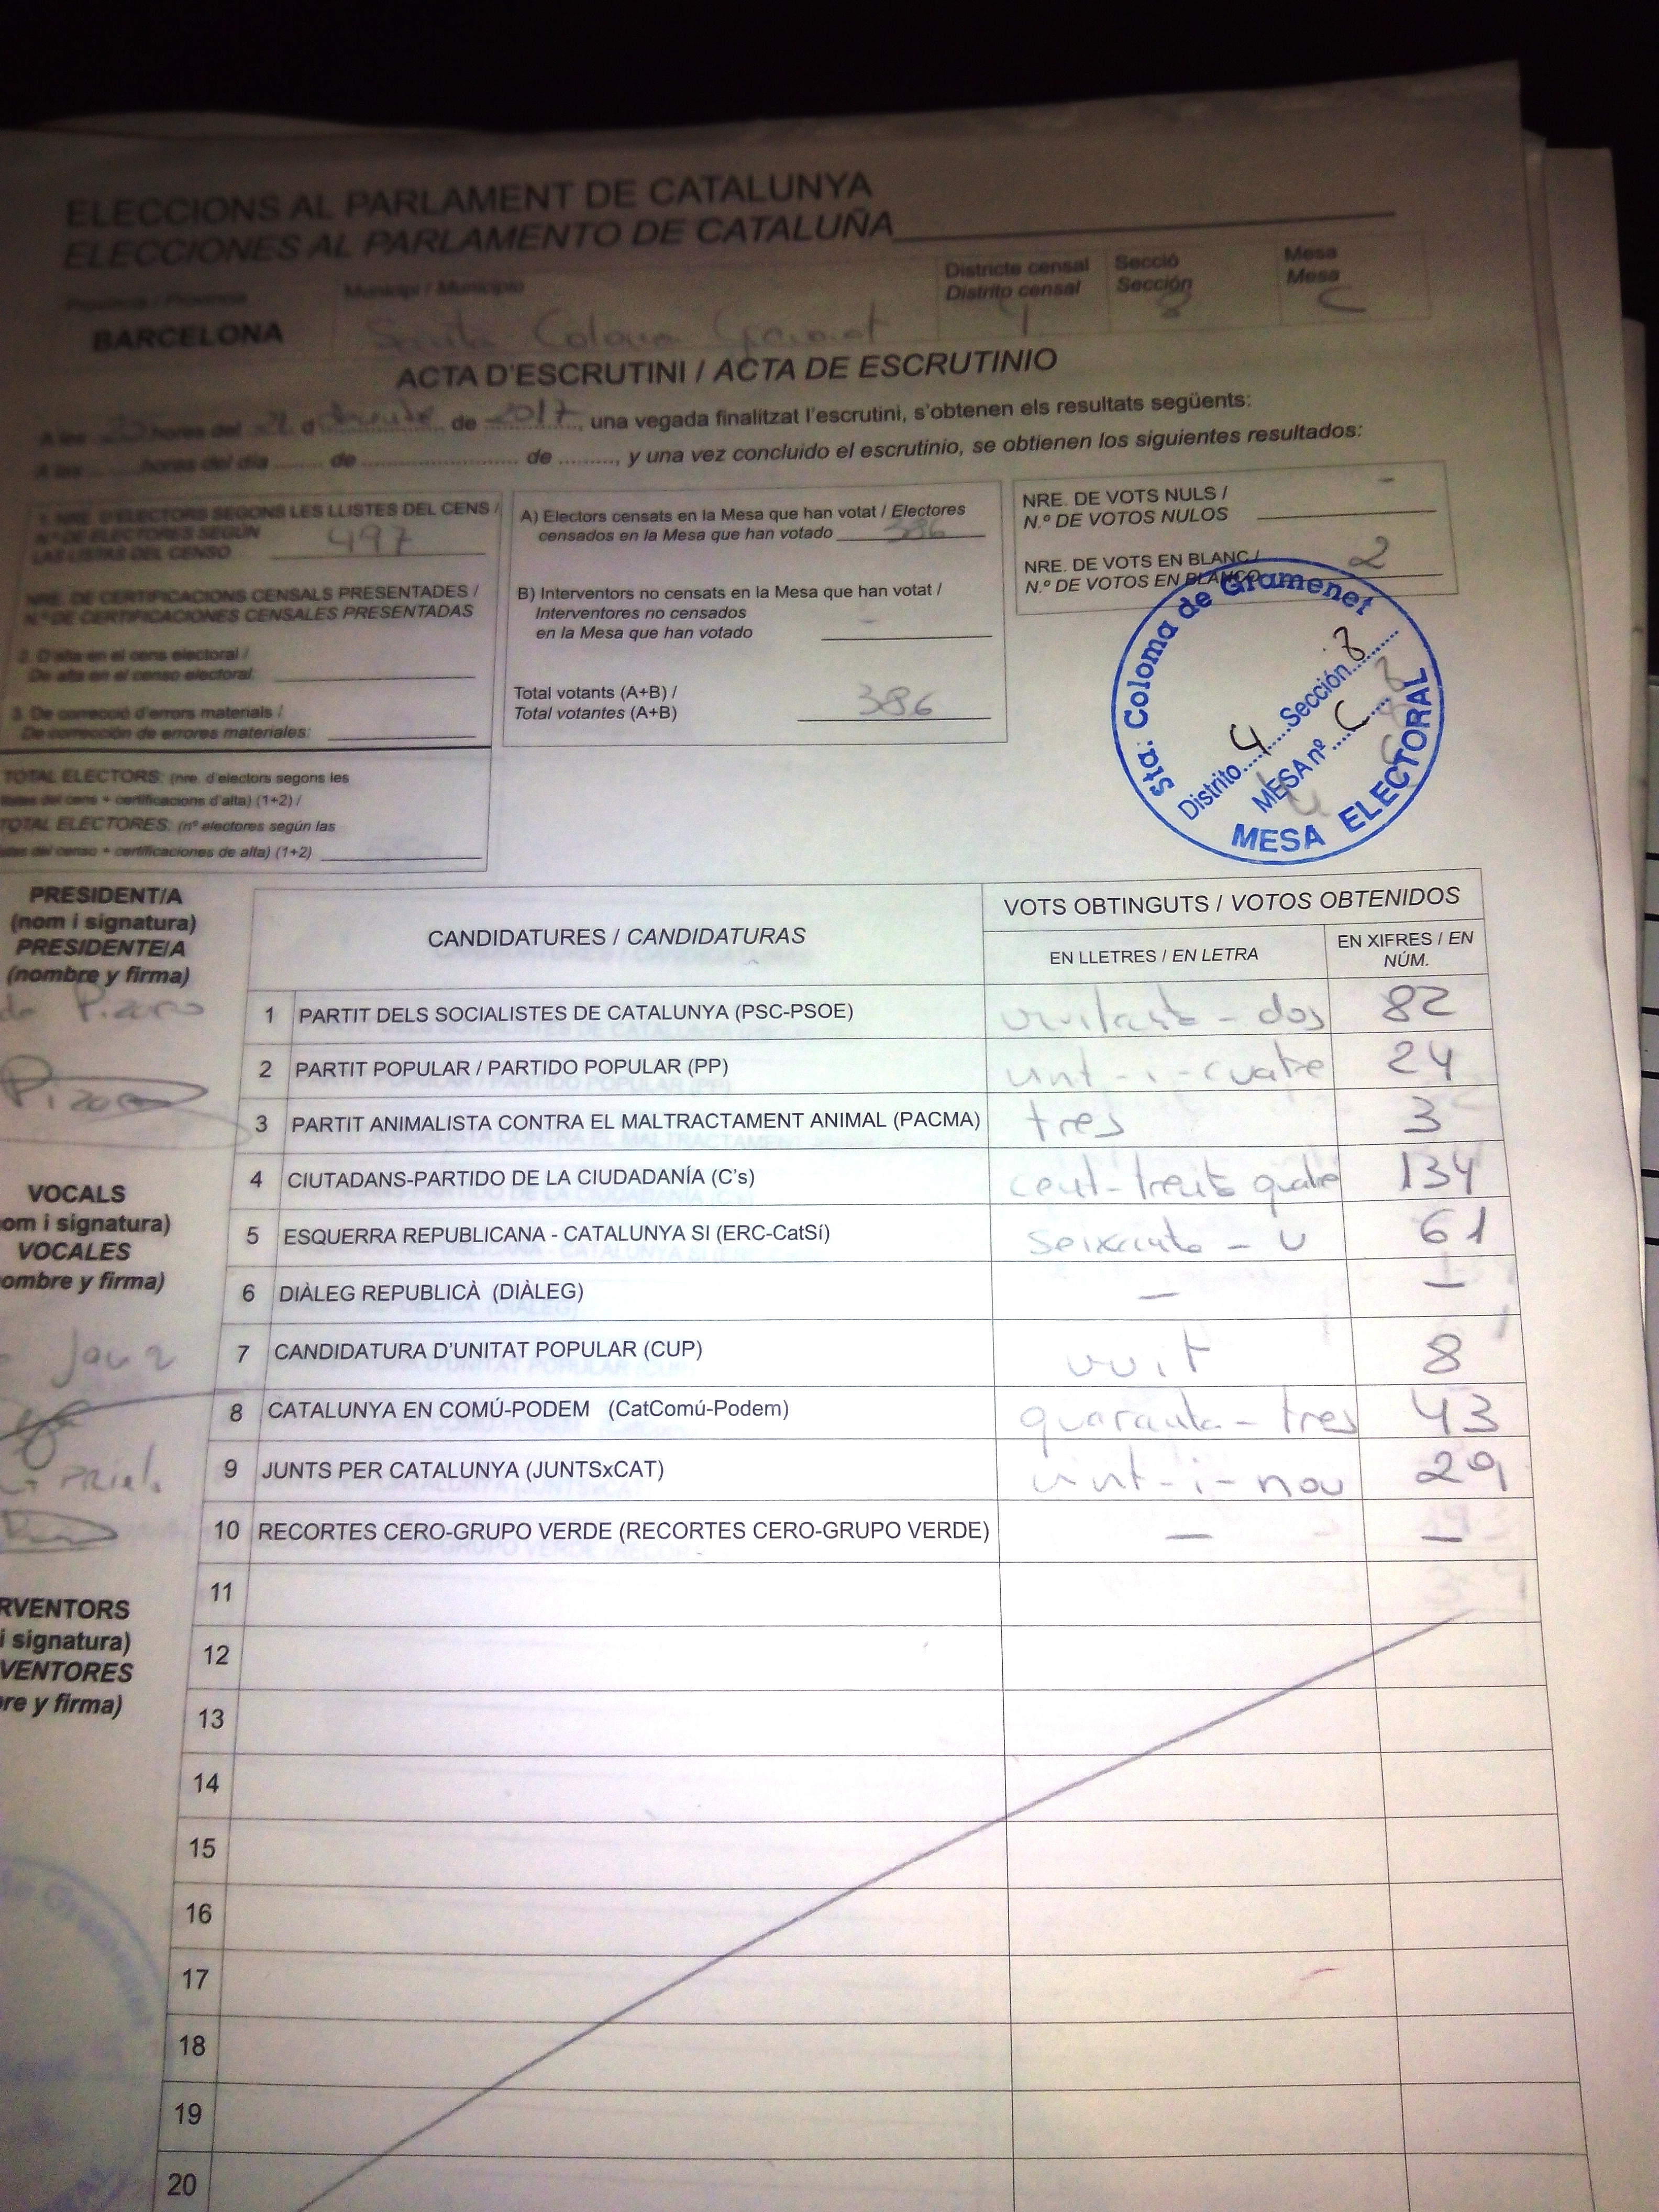 ELECCIONS AL PARLAMENT DE CATALUNYA
ELECCIONES AL PARLAMENTO DE CATALUÑA
Província / Provincia
Municipi / Municipio
Districte censal
Distrito censal
Secció
Sección
Mesa
Mesa
BARCELONA
Santa Coloma Gramenet
4
8
C
ACTA D'ESCRUTINI / ACTA DE ESCRUTINIO
A les hores del 21 d de 2017, una vegada finalitzat l'escrutini, s'obtenen els resultats següents:
A las ........ hores del día ........ de ........................ de ........., y una vez concluido el escrutinio, se obtienen los siguientes resultados:
1. NRE. D'ELECTORS SEGONS LES LLISTES DEL CENS /
N.º DE ELECTORES SEGÚN
LAS LISTAS DEL CENSO 497
NRE. DE CERTIFICACIONS CENSALS PRESENTADES /
N.º DE CERTIFICACIONES CENSALES PRESENTADAS
2. D'alta en el cens electoral /
De alta en el censo electoral:
3. De correcció d'errors materials /
De corrección de errores materiales:
TOTAL ELECTORS: (nre. d'electors segons les
llistes del cens + certificacions d'alta) (1+2) /
TOTAL ELECTORES: (nº electores según las
listas del censo + certificaciones de alta) (1+2)
A) Electors censats en la Mesa que han votat / Electores
censados en la Mesa que han votado 386
B) Interventors no censats en la Mesa que han votat /
Interventores no censados
en la Mesa que han votado -
Total votants (A+B) /
Total votantes (A+B) 386
NRE. DE VOTS NULS /
N.º DE VOTOS NULOS -
NRE. DE VOTS EN BLANC /
N.º DE VOTOS EN BLANCO 2
Sta: Coloma de Gramenet
Distrito 4 Sección 8
MESA nº C
MESA ELECTORAL
PRESIDENT/A
(nom i signatura)
PRESIDENTE/A
(nombre y firma)
VOCALS
om i signatura)
VOCALES
ombre y firma)
RVENTORS
i signatura)
VENTORES
re y firma)
CANDIDATURES / CANDIDATURAS
VOTS OBTINGUTS / VOTOS OBTENIDOS
EN LLETRES / EN LETRA
EN XIFRES / EN
NÚM.
1 PARTIT DELS SOCIALISTES DE CATALUNYA (PSC-PSOE) vuitanta - dos 82
2 PARTIT POPULAR / PARTIDO POPULAR (PP) vint - i - cuatre 24
3 PARTIT ANIMALISTA CONTRA EL MALTRACTAMENT ANIMAL (PACMA) tres 3
4 CIUTADANS-PARTIDO DE LA CIUDADANÍA (C's) cent-trenta quatre 134
5 ESQUERRA REPUBLICANA - CATALUNYA SI (ERC-CatSí) seixanta - u 61
6 DIÀLEG REPUBLICÀ (DIÀLEG) — —
7 CANDIDATURA D'UNITAT POPULAR (CUP) vuit 8
8 CATALUNYA EN COMÚ-PODEM (CatComú-Podem) quaranta - tres 43
9 JUNTS PER CATALUNYA (JUNTSxCAT) vint - i - nou 29
10 RECORTES CERO-GRUPO VERDE (RECORTES CERO-GRUPO VERDE) — —
11
12
13
14
15
16
17
18
19
20